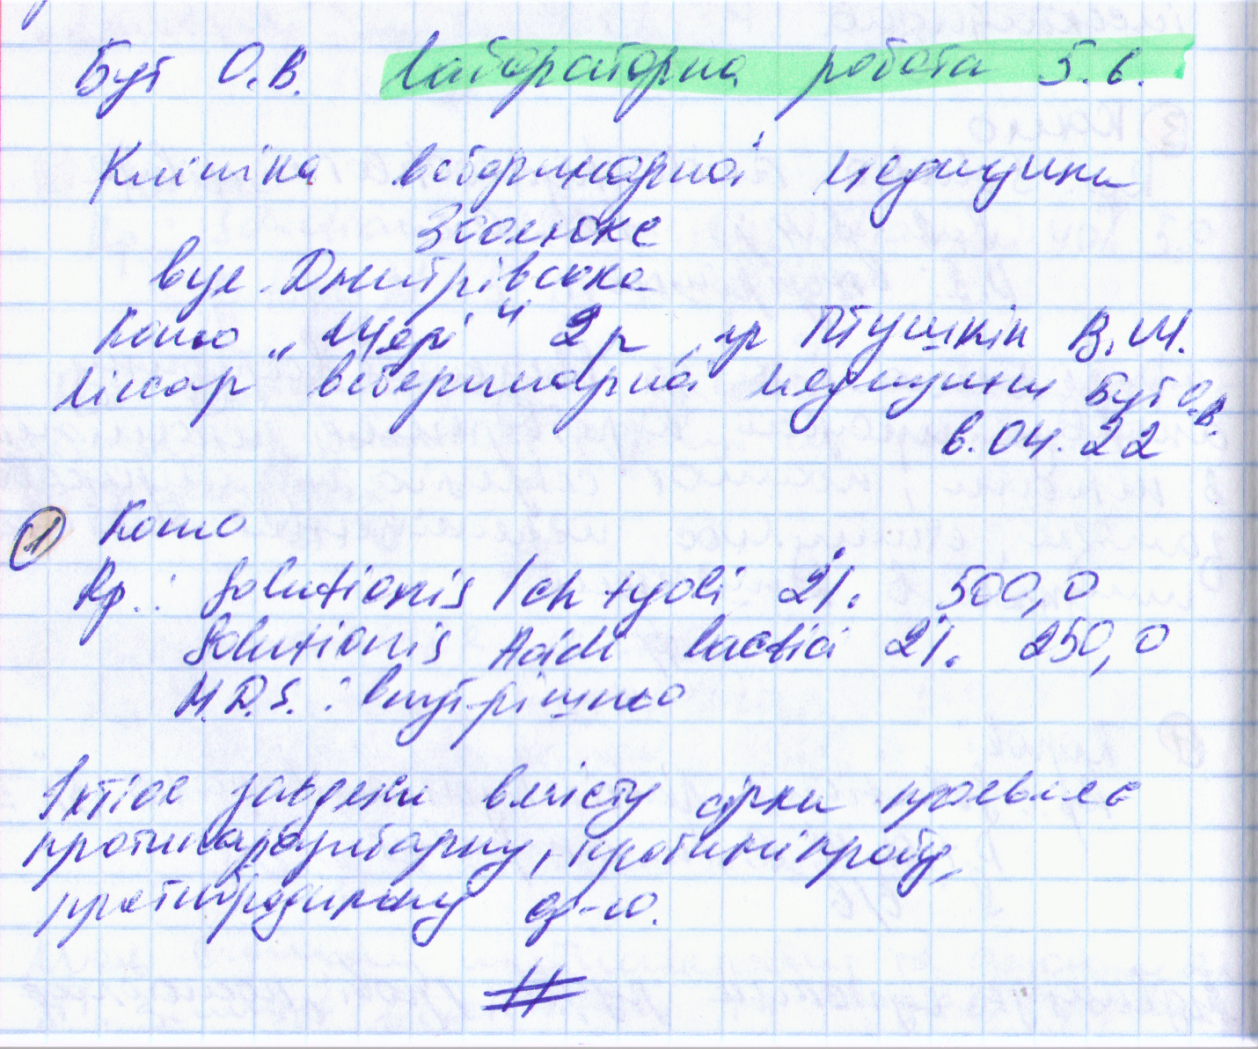 Бут О.В. Лабораторна робота 5.6.
Клініка ветеринарної медицини
Зоолюкс
вул. Дмитрівська
Кішка 2р гр Птушкін В.М.
Лікар ветеринарної медицини Бут О.В.
6.04.22
①
Rp.: Solutionis Ichtyoli 2%. 500,0
Solutionis Acidi lactici 2%. 250,0
M.D.S.: внутрішньо
Іхтіол завдяки вмісту сірки проявляє
протипаразитарну, протимікробну,
протибродильну д-ю.